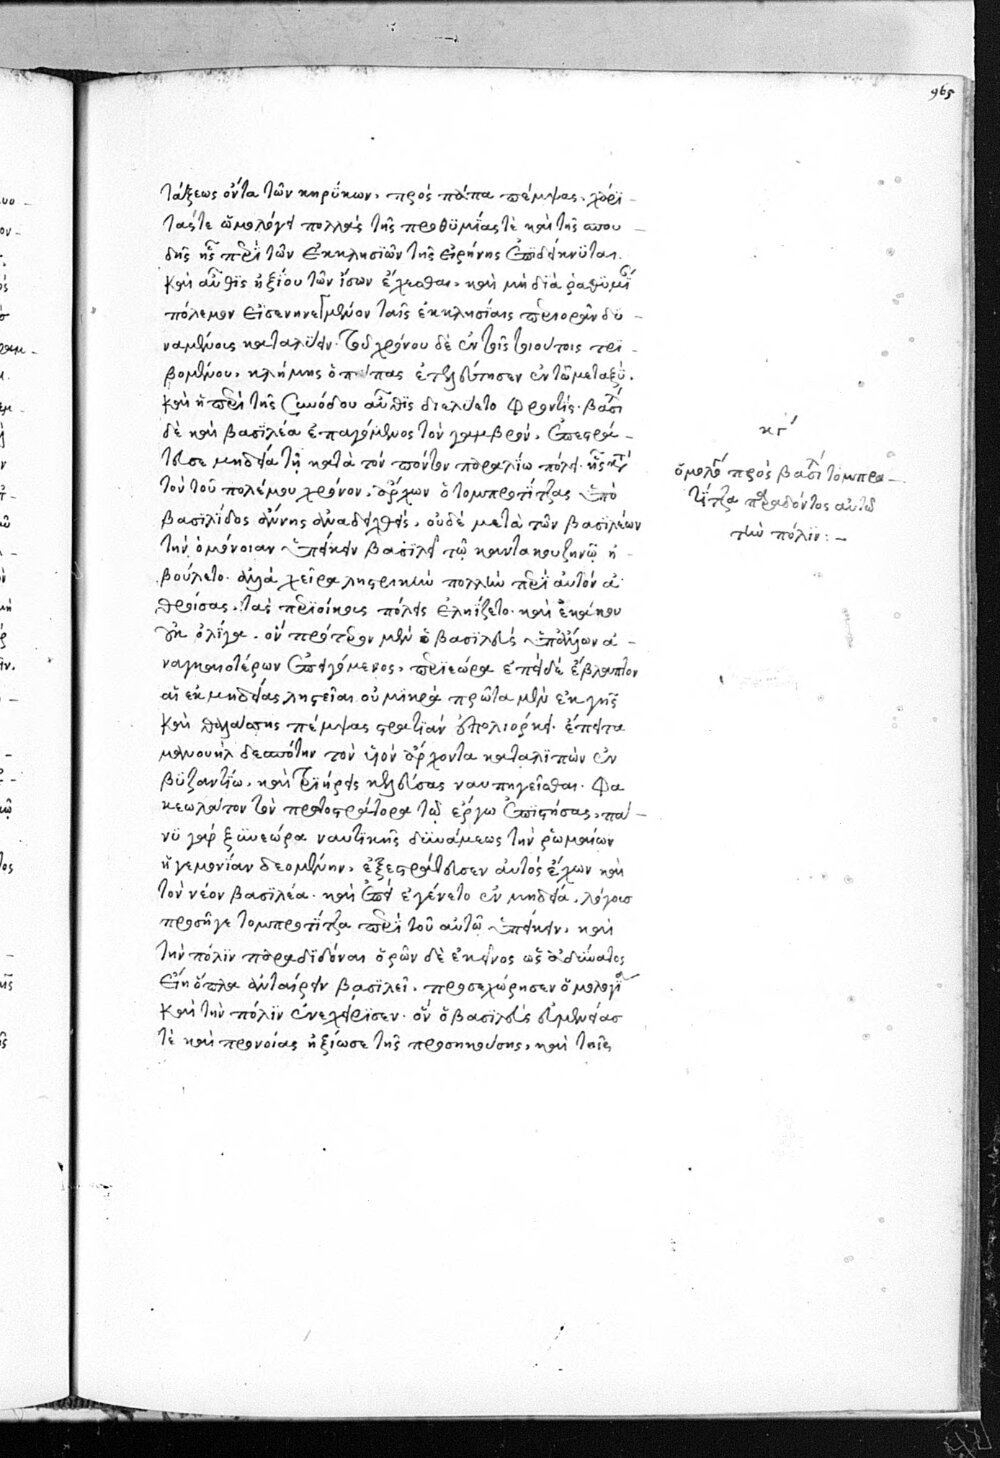 965
τάξεως ὄντα τῶν κηρύκων, πρὸς πάπα πέμψας, χάρϊ-
τάς τε ὡμολόγει πολλὰς τῆς προθυμΐας τὲ καὶ τῆς σπου
δῆς ἧς περὶ τῶν ἐκκλησϊῶν τῆς εἰρήνης ἐπϊδείκνϋται.
καὶ αὖθϊς ἠξίου τῶν ἴσων ἔχεσθαι, καὶ μὴ διὰ ῥαθυμΐ
πόλεμον εἰσενηνεγμένον ταῖς ἐκκλησίαις περιορᾶν δϋ-
ναμένοις καταλύειν. τοῦ χρόνου δὲ ἐν τοῖς τοιούτοις τρϊ-
βομένου, κλήμης ὁ πάπας ἐτελεύτησεν ἐν τῶ μεταξὺ.
καὶ ἡ περὶ τῆς συνόδου αὖθϊς διελύετο φροντίς. βασϊ
δὲ καὶ βασϊλέα ἐπαγόμενος τὸν γαμβρὸν, ἐπεστρά-
τευσε μηδεία τῇ κατὰ τὸν πόντον παραλίω πόλει. ἧς κατ
τὸν τοῦ πολέμου χρόνον, ἄρχων ὁ τομπροτίτζας ὑπὸ
βασϊλίδος ἄννης ἀναδειχθεὶς, οὐδὲ μετὰ τῶν βασϊλέων
τὴν ὁμόνοιαν ὑπείκειν βασϊλεῖ τῷ καντακουζηνῷ ἠ-
βούλετο. ἀλλὰ χεῖρα ληστρικὴν πολλὴν περὶ αὐτὸν ἀ
θροίσας, τὰς περϊοίκους πόλεις ἐληίζετο. καὶ ἐκάκου
οὐκ ὀλίγα. ὃν πρότερον μὲν ὁ βασϊλεὺς ὑπ' ἄλλων ἀ-
ναγκαιοτέρων ἐπειγόμενος, περϊεώρα ἐπεὶ δὲ ἔβλαπτον
αἱ ἐκ μηδείας ληστεῖαι οὐ μικρὰ πρῶτα μὲν ἐκ γῆς
καὶ θαλάττης πέμψας στρατϊὰν ἐπολιόρκει. ἔπειτα
μανουὴλ δεσπότην τὸν ὑϊὸν ἄρχοντα καταλϊπὼν ἐν
βϋζαντίω, καὶ τρϊήρεις κελεύσας ναυπηγεῖσθαι. φα
κεωλάτον τὸν πρωτοστράτορα τῷ ἔργω ἐπϊστήσας, πά-
νϋ γὰρ ξϋνεώρα ναυτικῆς δϋνάμεως τὴν ῥωμαίων
ἡγεμονίαν δεομένην, ἐξεστράτευσεν αὐτὸς ἔχων καὶ
τὸν νέον βασϊλέα. καὶ ἐπεὶ ἐγένετο ἐν μηδεία, λόγους
προσῆγε τομπροτίτζα περὶ τοῦ αὐτῶ ὑπείκειν, καὶ
τὴν πόλϊν παραδϊδόναι ὁρῶν δὲ ἐκεῖνος ὡς ἀδύνατος
εἴη ὅπλα ἀνταίρειν βασϊλεῖ, προσεχώρησεν ὁμολογί
καὶ τὴν πόλϊν ἐνεχείρϊσεν. ὃν ὁ βασϊλεὺς εὐμενείας
τὲ καὶ προνοίας ἠξίωσε τῆς προσηκούσης, καὶ τοῖς
κγ΄
ὁμολογ πρὸς βασϊ τομπρο-
τΐτζα παραδόντος αὐτῶ
τὴν πόλϊν:-